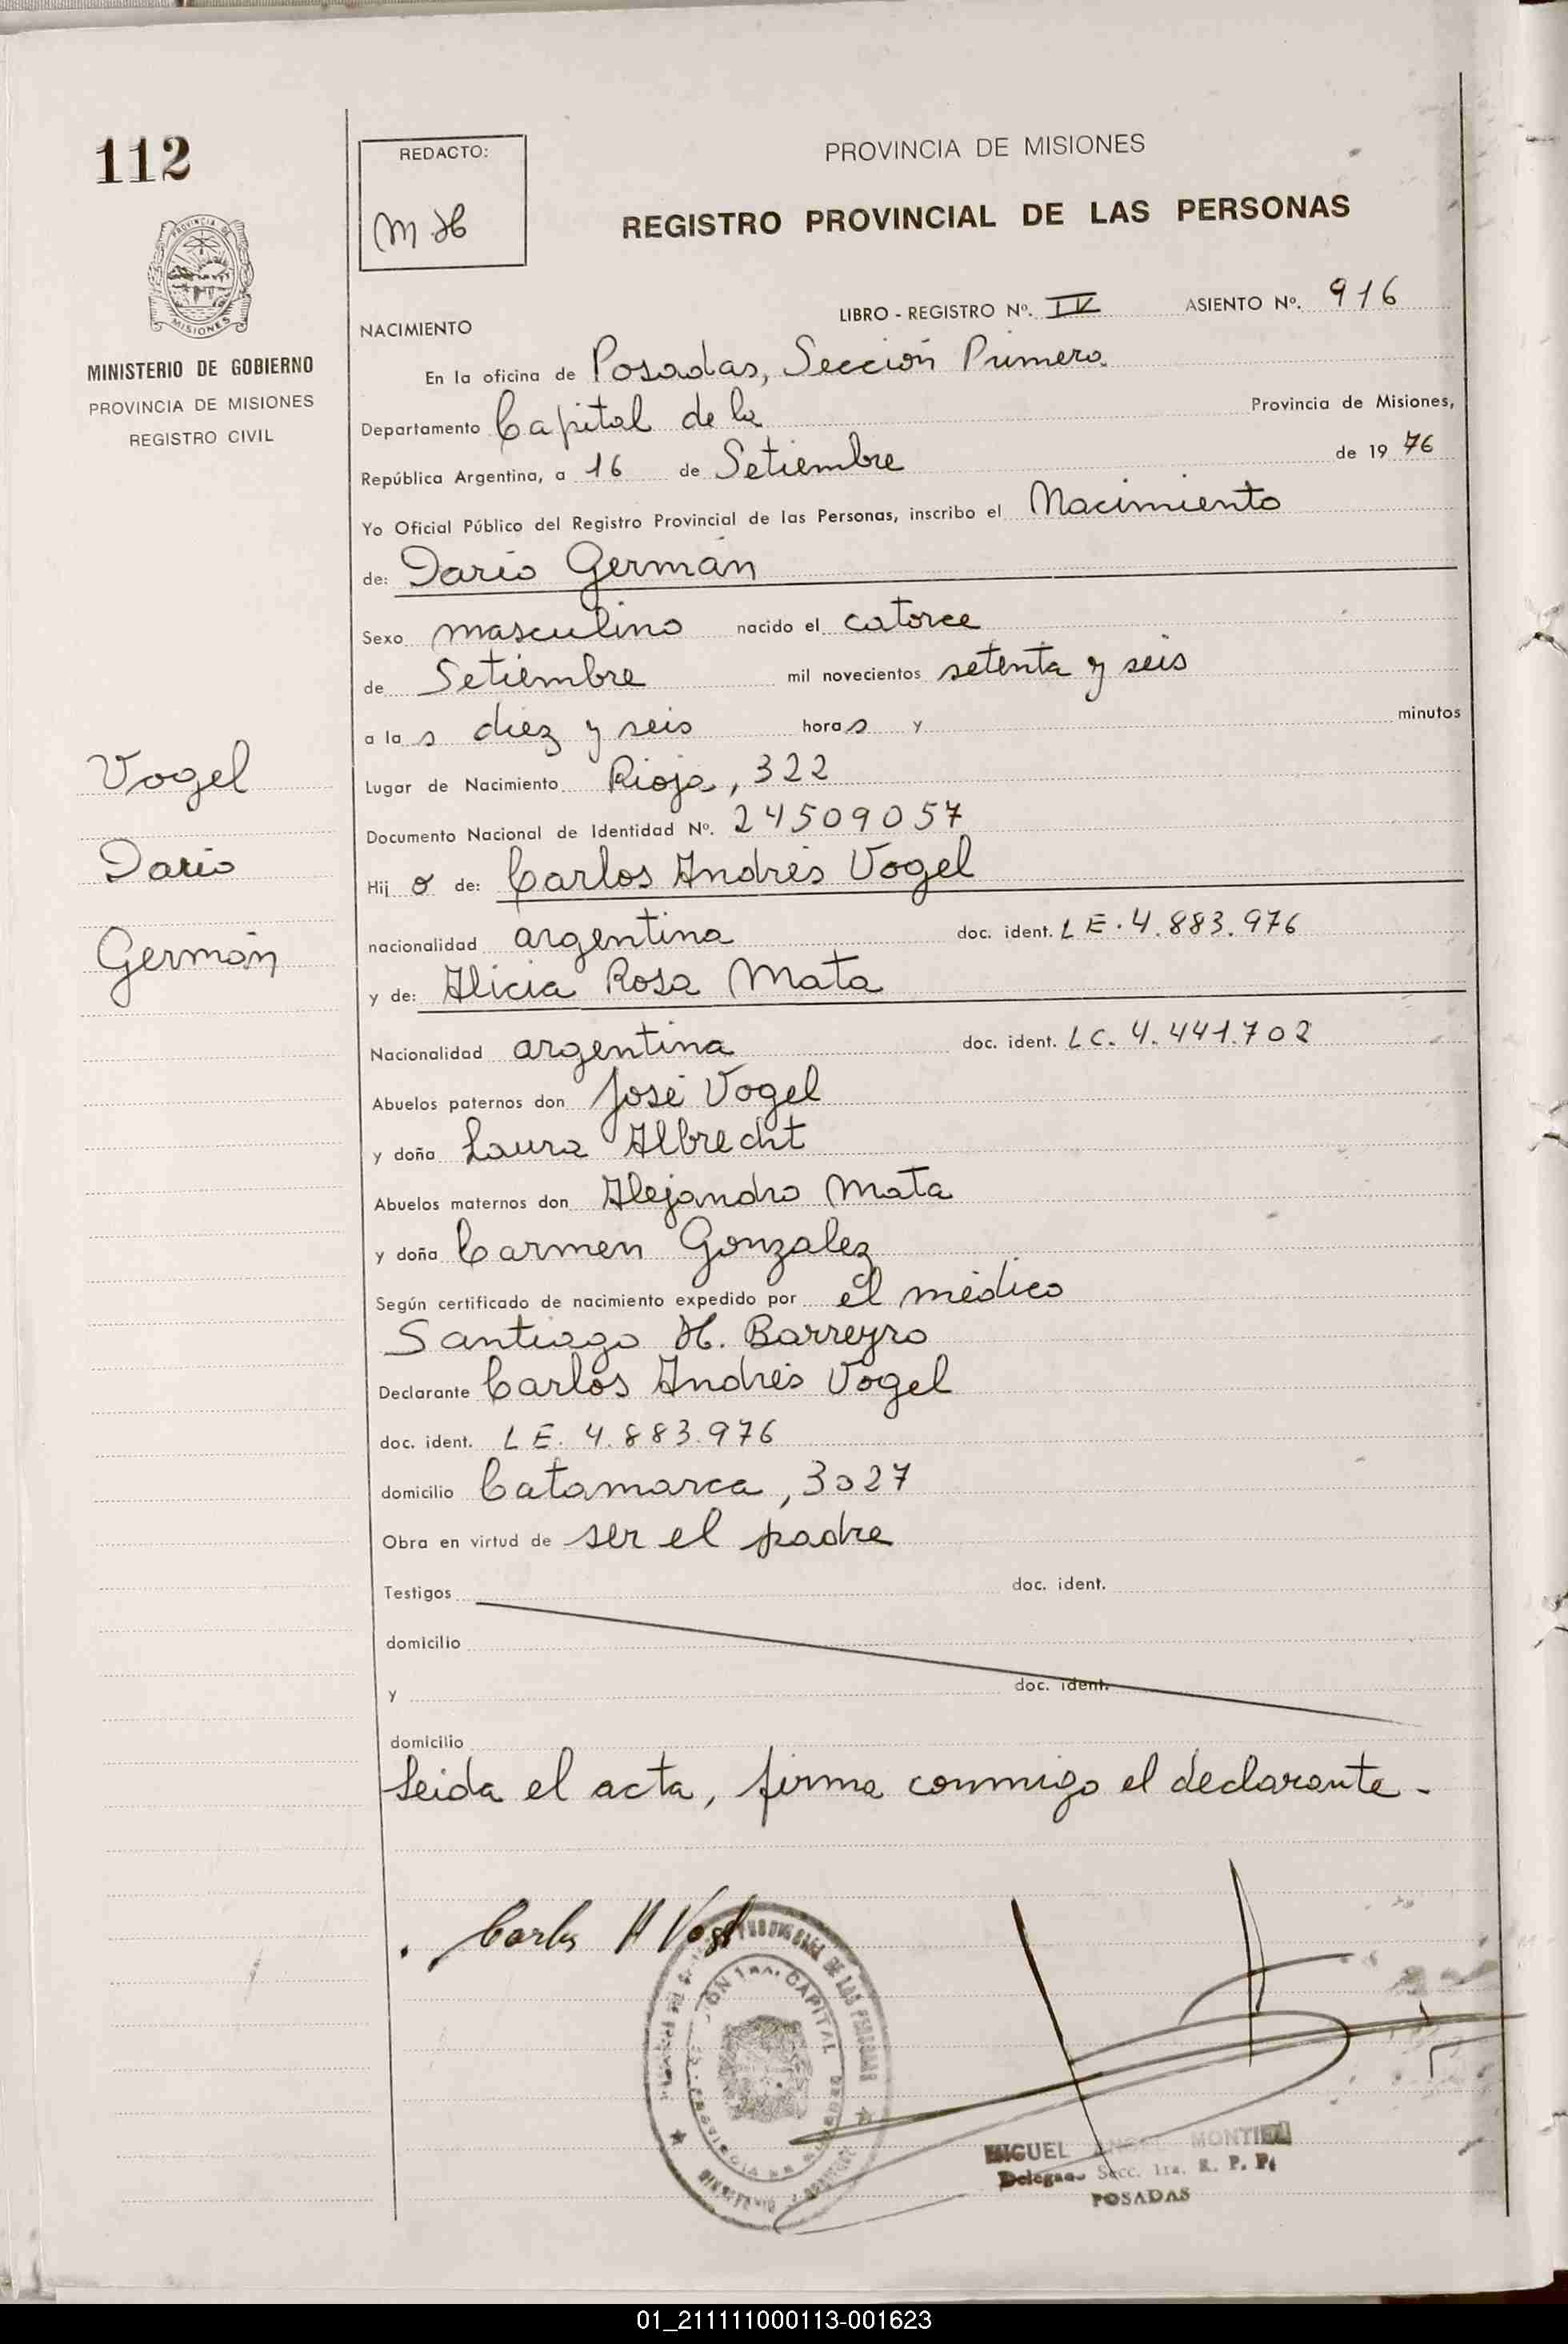 112
PROVINCIA DE MISIONES
MINISTERIO DE GOBIERNO
PROVINCIA DE MISIONES
REGISTRO CIVIL
Vogel
Dario
Germán
REDACTO:
PROVINCIA DE MISIONES
REGISTRO PROVINCIAL DE LAS PERSONAS
NACIMIENTO LIBRO - REGISTRO Nº. IV ASIENTO Nº. 916
En la oficina de Posadas, Sección Primera
Departamento Capital de la Provincia de Misiones,
República Argentina, a 16 de Setiembre de 1976
Yo Oficial Público del Registro Provincial de las Personas, inscribo el Nacimiento
de: Darío Germán
Sexo masculino nacido el catorce
de Setiembre mil novecientos setenta y seis
a las diez y seis horas y minutos
Lugar de Nacimiento Rioja, 322
Documento Nacional de Identidad Nº. 24509057
Hijo de: Carlos Andrés Vogel
nacionalidad argentina doc. ident. LE. 4.883.976
y de: Alicia Rosa Mata
Nacionalidad argentina doc. ident. LC. 4.441.702
Abuelos paternos don José Vogel
y doña Laura Albrecht
Abuelos maternos don Alejandro Mata
y doña Carmen Gonzalez
Según certificado de nacimiento expedido por el médico
Santiago H. Barreyro
Declarante Carlos Andrés Vogel
doc. ident. LE. 4.883.976
domicilio Catamarca, 3027
Obra en virtud de ser el padre
Testigos doc. ident.
domicilio
y doc. ident.
domicilio
Leida el acta, firma conmigo el declarante.
Carlos A Vogel
CAPITAL
DE LAS PERSONAS
MIGUEL ANGEL MONTIEL
Secc. 1ra. R. P. P.
POSADAS
01_211111000113-001623